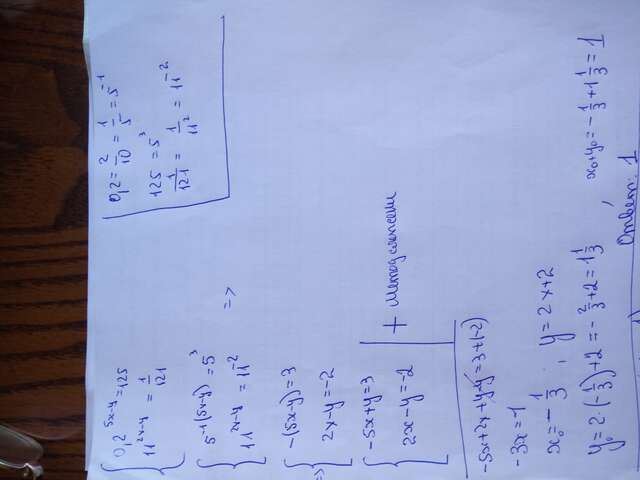 0,2^{5x-y} = 125
11^{2x-y} = \frac{1}{121}
0,2 = \frac{2}{10} = \frac{1}{5} = 5^{-1}
125 = 5^3
\frac{1}{121} = \frac{1}{11^2} = 11^{-2}
5^{-1(5x-y)} = 5^3
11^{2x-y} = 11^{-2} =>
-(5x-y) = 3
=> 2x-y = -2
-5x+y = 3
2x-y = -2 + Метод сложения
-5x+2x+y-y = 3+(-2)
-3x = 1
x₀ = -\frac{1}{3} ; y = 2x+2
y₀ = 2·(-\frac{1}{3})+2 = -\frac{2}{3}+2 = 1\frac{1}{3} , x₀+y₀ = -\frac{1}{3}+1\frac{1}{3} = 1
Ответ: 1